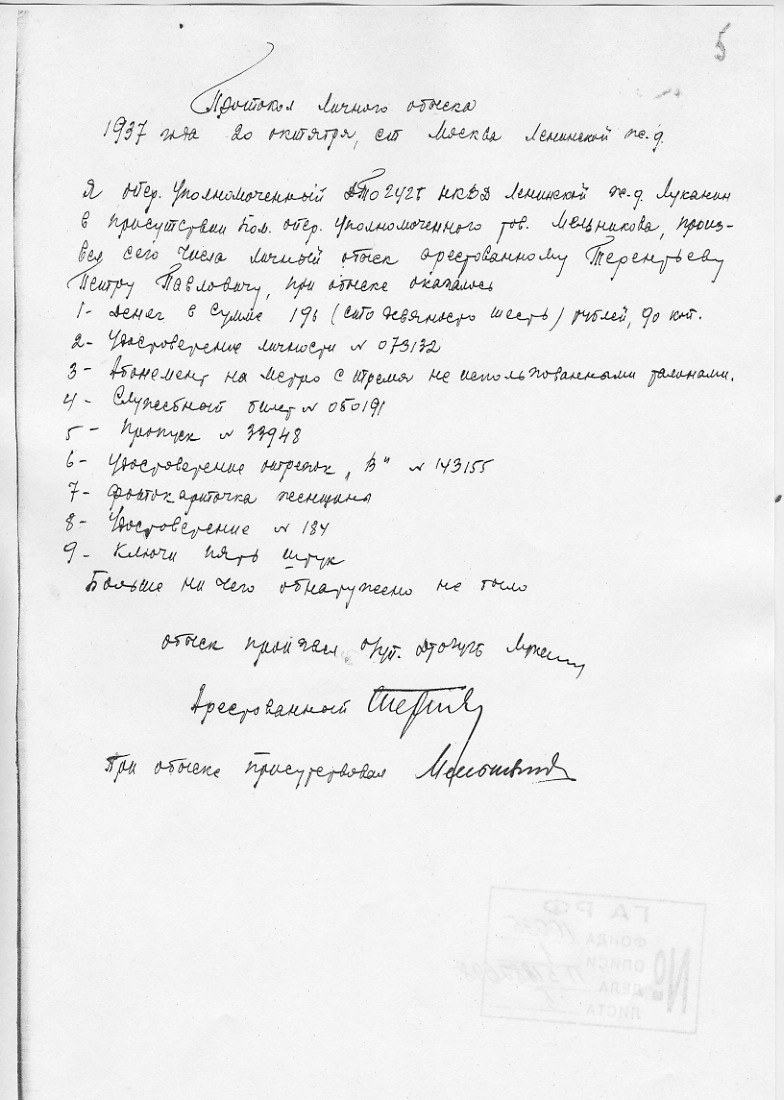 5
Протокол личного обыска
1937 года 20 октября, ст Москва Ленинской ж.д.
Я опер. Уполномоченный ДТО ГУГБ НКВД Ленинской ж.д. Луканин
в присутствии Пом. опер. уполномоченного тов. Мельникова, произ-
вел сего числа личный обыск арестованному Терентьеву
Петру Павловичу, при обыске оказалось
1- денег в сумме 196 (сто девяносто шесть) рублей, 90 коп.
2- Удостоверение личности № 073132
3- Абонемент на метро с тремя не использованными талонами.
4- Служебный билет № 050191
5- Пропуск № 33948
6- Удостоверение "В" № 143155
7- фотокарточка женщина
8- Удостоверение № 184
9- Ключи пять штук
Больше ни чего обнаружено не было
обыск произвел о/уп. ДТОГУГБ
Арестованный
При обыске присутствовал
ГАРФ
ФОНДА
ОПИСИ
ДЕЛА
ЛИСТА
№